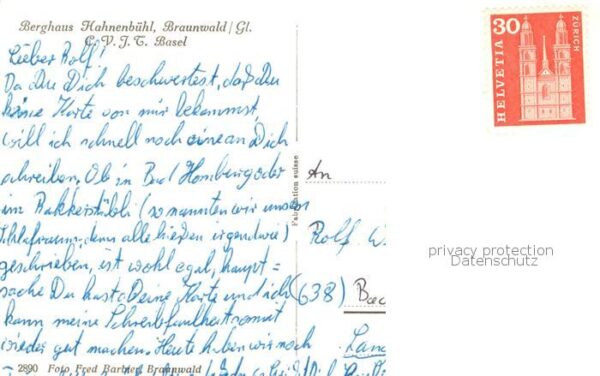 Berghaus Hahnenbühl, Braunwald / Gl.
C. V. J. T. Basel
Lieber Rolf!
Da Du Dich beschwertest, daß Du
keine Karte von mir bekommst,
will ich schnell noch eine an Dich
schreiben. Ob in Bad Homburg oder
im Rakkerstübli (so nannten wir unsern
Schlafraum, denn alle hießen irgendwie)
geschrieben, ist wohl egal, haupt=
sache Du hast Deine Karte und ich
kann meine Schreibfaulheit somit
wieder gut machen. Heute haben wir noch
2890 Foto Fred Barbier, Braunwald
Fabrication suisse
An
Rolf W
(638) Bad
HELVETIA 30
ZÜRICH
privacy protection
Datenschutz